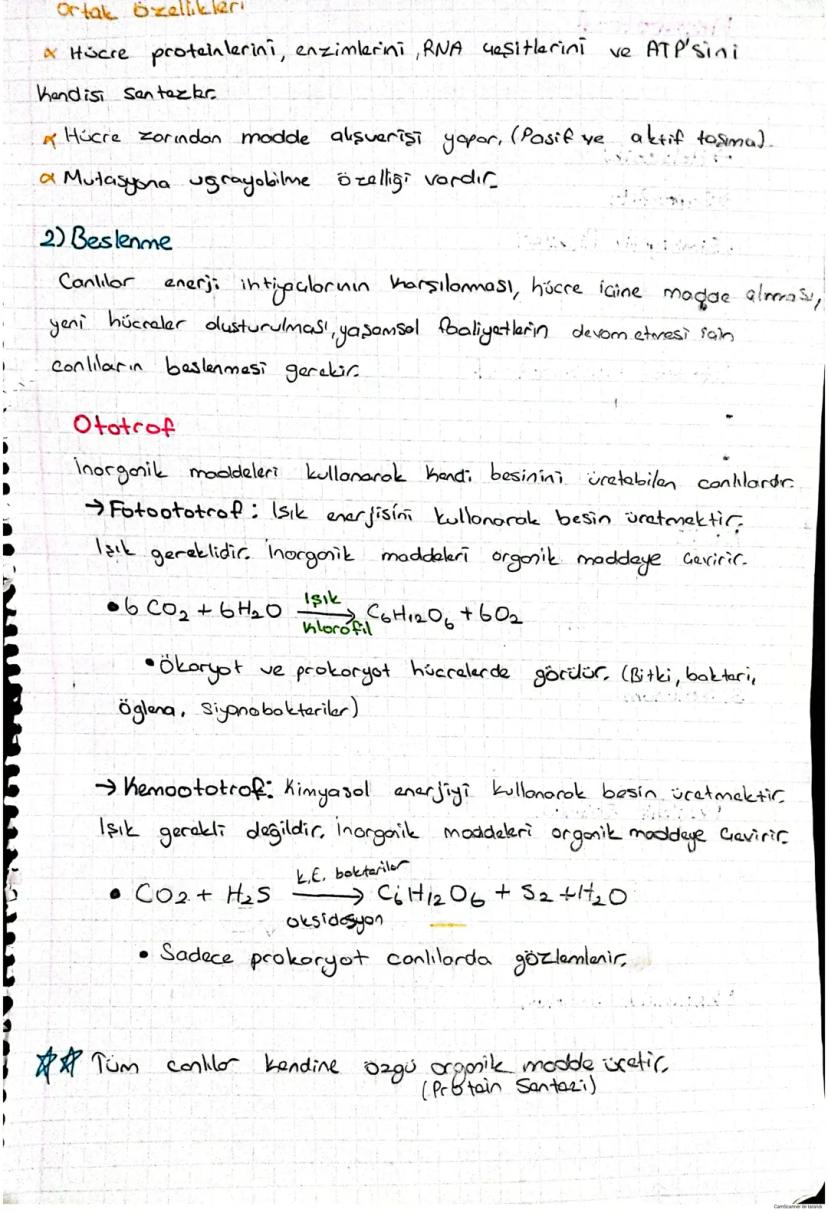 Ortak Özellikleri
α Hücre proteinlerini, enzimlerini, RNA çeşitlerini ve ATP'sini
kendisi sentezler.
α Hücre zarından madde alışverişi yapar. (Pasif ve aktif taşıma).
α Mutasyona uğrayabilme özelliği vardır.
2) Beslenme
Canlılar enerji ihtiyaçlarının karşılanması, hücre içine madde alması,
yeni hücreler oluşturulması, yaşamsal faaliyetlerin devam etmesi için
canlıların beslenmesi gerekir.
Ototrof
İnorganik maddeleri kullanarak kendi besinini üretebilen canlılardır.
→ Fotoototrof: Işık enerjisini kullanarak besin üretmektir.
Işık gereklidir. İnorganik maddeleri organik maddeye çevirir.
• 6 CO₂ + 6H₂O Işık → Klorofil C₆H₁₂O₆ + 6O₂
• Ökaryot ve prokaryot hücrelerde görülür. (Bitki, bakteri,
Öglena, Siyanobakteriler)
→ Kemoototrof: Kimyasal enerjiyi kullanarak besin üretmektir.
Işık gerekli değildir. İnorganik maddeleri organik maddeye çevirir.
• CO₂ + H₂S K.E. bakteriler → oksidasyon C₆H₁₂O₆ + S₂ + H₂O
• Sadece prokaryot canlılarda gözlemlenir.
☆☆ Tüm canlılar kendine özgü organik madde üretir.
(Protein Sentezi)
CamScanner ile tarandı